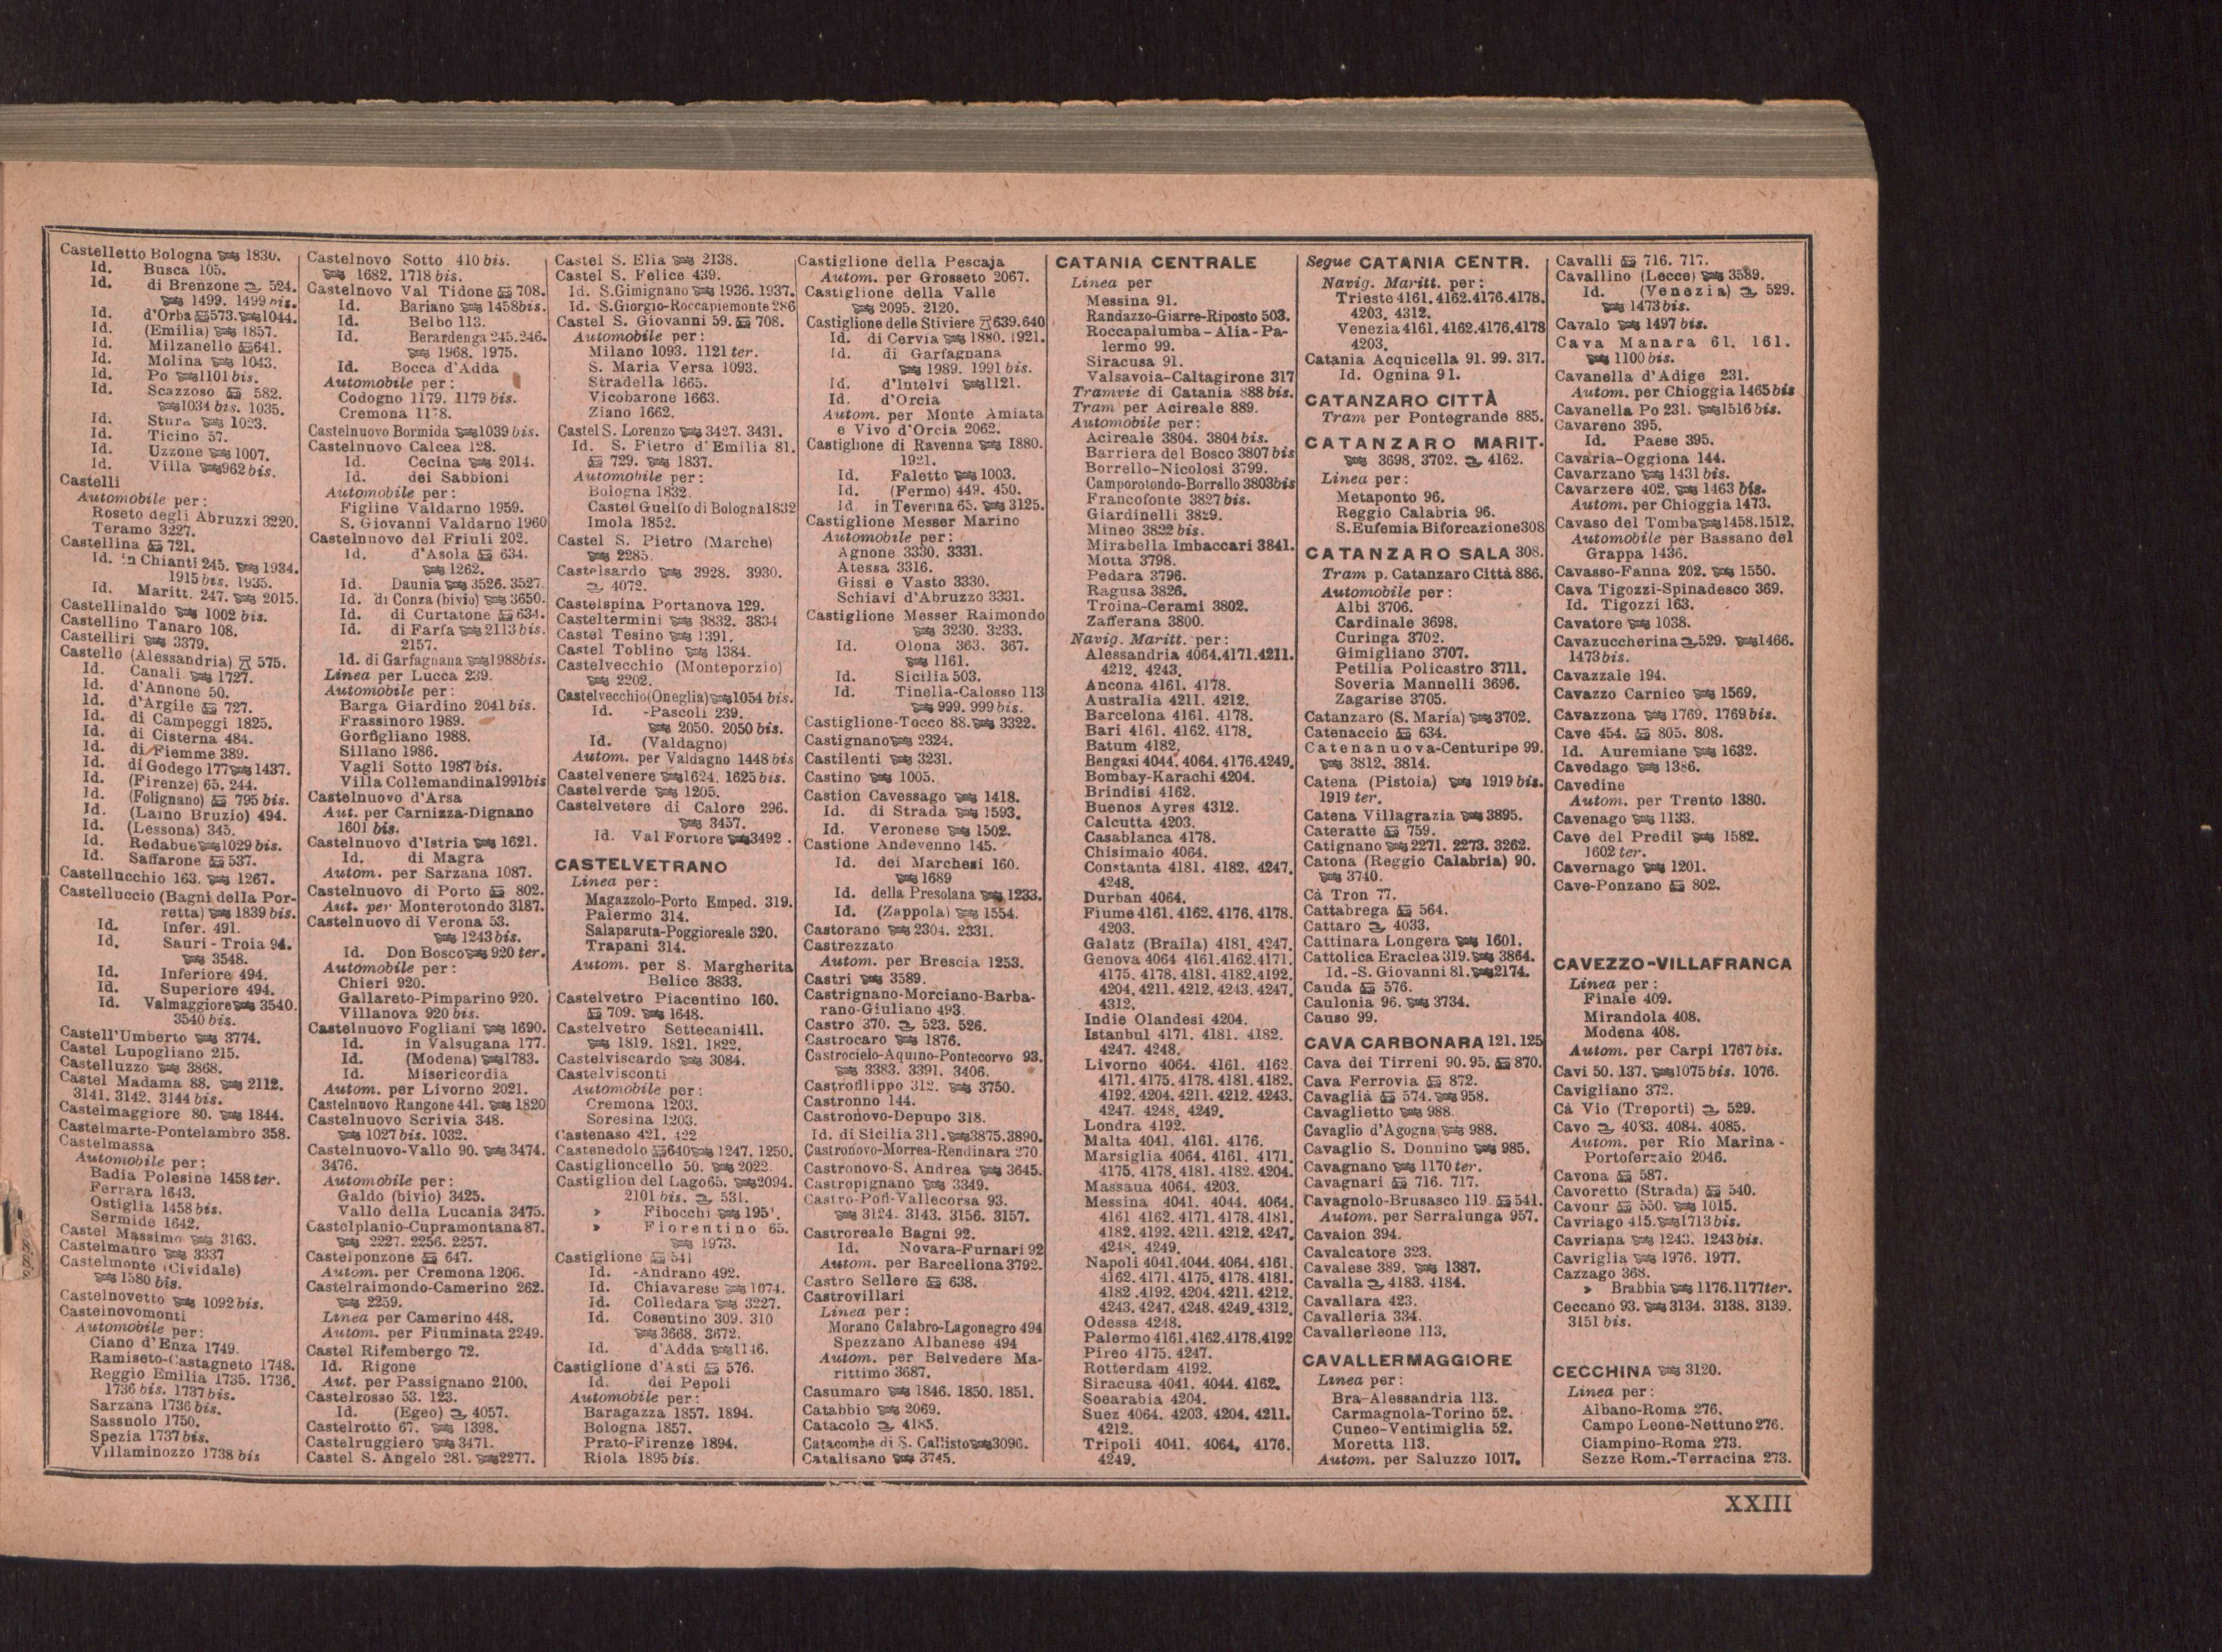 Castelletto Bologna 1830.
Id. Busca 105.
Id. di Brenzone 524.
1499. 1499 bis.
Id. d'Orba 573. 1044.
Id. (Emilia) 1857.
Id. Milzanello 641.
Id. Molina 1043.
Id. Po 1101 bis.
Id. Scazzoso 582.
1034 bis. 1035.
Id. Stura 1023.
Id. Ticino 57.
Id. Uzzone 1007.
Id. Villa 962 bis.
Castelli
Automobile per:
Roseto degli Abruzzi 3220.
Teramo 3227.
Castellina 721.
Id. in Chianti 245. 1934.
1915 bis. 1935.
Id. Maritt. 247. 2015.
Castellinaldo 1002 bis.
Castellino Tanaro 108.
Castelliri 3379.
Castello (Alessandria) 575.
Id. Canali 1727.
Id. d'Annone 50.
Id. d'Argile 727.
Id. di Campeggi 1825.
Id. di Cisterna 484.
Id. di Fiemme 389.
Id. di Godego 177 1437.
Id. (Firenze) 65. 244.
Id. (Folignano) 795 bis.
Id. (Laino Bruzio) 494.
Id. (Lessona) 345.
Id. Redabue 1029 bis.
Id. Saffarone 537.
Castellucchio 163. 1267.
Castelluccio (Bagni della Por-
retta) 1839 bis.
Id. Infer. 491.
Id. Sauri - Troia 94.
3548.
Id. Inferiore 494.
Id. Superiore 494.
Id. Valmaggiore 3540.
3540 bis.
Castell'Umberto 3774.
Castel Lupogliano 215.
Castelluzzo 3868.
Castel Madama 88. 2112.
3141. 3142. 3144 bis.
Castelmaggiore 80. 1844.
Castelmarte-Pontelambro 358.
Castelmassa
Automobile per:
Badia Polesine 1458 ter.
Ferrara 1643.
Ostiglia 1458 bis.
Sermide 1642.
Castel Massimo 3163.
Castelmauro 3337
Castelmonte (Cividale)
1580 bis.
Castelnovetto 1092 bis.
Castelnovomonti
Automobile per:
Ciano d'Enza 1749.
Ramiseto-Castagneto 1748.
Reggio Emilia 1735. 1736.
1736 bis. 1737 bis.
Sarzana 1736 bis.
Sassuolo 1750.
Spezia 1737 bis.
Villaminozzo 1738 bis
Castelnovo Sotto 410 bis.
1682. 1718 bis.
Castelnovo Val Tidone 708.
Id. Bariano 1458 bis.
Id. Belbo 113.
Id. Berardenga 245. 246.
1968. 1975.
Id. Bocca d'Adda
Automobile per:
Codogno 1179. 1179 bis.
Cremona 1178.
Castelnuovo Bormida 1039 bis.
Castelnuovo Calcea 128.
Id. Cecina 2014.
Id. dei Sabbioni
Automobile per:
Figline Valdarno 1959.
S. Giovanni Valdarno 1960
Castelnuovo del Friuli 202.
Id. d'Asola 634.
1262.
Id. Daunia 3526. 3527
Id. di Conza (bivio) 3650.
Id. di Curtatone 634.
Id. di Farfa 2113 bis.
2157.
Id. di Garfagnana 1988 bis.
Linea per Lucca 239.
Automobile per:
Barga Giardino 2041 bis.
Frassinoro 1989.
Gorfigliano 1988.
Sillano 1986.
Vagli Sotto 1987 bis.
Villa Collemandina 1991 bis
Castelnuovo d'Arsa
Aut. per Carnizza-Dignano
1601 bis.
Castelnuovo d'Istria 1621.
Id. di Magra
Autom. per Sarzana 1087.
Castelnuovo di Porto 802.
Aut. per Monterotondo 3187.
Castelnuovo di Verona 53.
1243 bis.
Id. Don Bosco 920 ter.
Automobile per:
Chieri 920.
Gallareto-Pimparino 920.
Villanova 920 bis.
Castelnuovo Fogliani 1690.
Id. in Valsugana 177.
Id. (Modena) 1783.
Id. Misericordia
Autom. per Livorno 2021.
Castelnuovo Rangone 441. 1820
Castelnuovo Scrivia 348.
1027 bis. 1032.
Castelnuovo-Vallo 90. 3474.
3476.
Automobile per:
Galdo (bivio) 3425.
Vallo della Lucania 3475.
Castelplanio-Cupramontana 87.
2227. 2256. 2257.
Castelponzone 647.
Autom. per Cremona 1206.
Castelraimondo-Camerino 262.
2259.
Linea per Camerino 448.
Autom. per Fiuminata 2249.
Castel Rifembergo 72.
Id. Rigone
Aut. per Passignano 2100.
Castelrosso 53. 123.
Id. (Egeo) 4057.
Castelrotto 67. 1398.
Castelruggiero 3471.
Castel S. Angelo 281. 2277.
Castel S. Elia 2138.
Castel S. Felice 439.
Id. S. Gimignano 1936. 1937.
Id. S. Giorgio-Roccapiemonte 286
Castel S. Giovanni 59. 708.
Automobile per:
Milano 1093. 1121 ter.
S. Maria Versa 1093.
Stradella 1665.
Vicobarone 1663.
Ziano 1662.
Castel S. Lorenzo 3427. 3431.
Id. S. Pietro d'Emilia 81.
729. 1837.
Automobile per:
Bologna 1832.
Castel Guelfo di Bologna 1832
Imola 1852.
Castel S. Pietro (Marche)
2285.
Castelsardo 3928. 3930.
4072.
Castelspina Portanova 129.
Casteltermini 3832. 3834
Castel Tesino 1391.
Castel Toblino 1384.
Castelvecchio (Monteporzio)
2202.
Castelvecchio (Oneglia) 1054 bis.
Id. -Pascoli 239.
2050. 2050 bis.
Id. (Valdagno)
Autom. per Valdagno 1448 bis
Castelvenere 1624. 1625 bis.
Castelverde 1205.
Castelvetere di Calore 296.
3457.
Id. Val Fortore 3492.
CASTELVETRANO
Linea per:
Magazzolo-Porto Emped. 319.
Palermo 314.
Salaparuta-Poggioreale 320.
Trapani 314.
Autom. per S. Margherita
Belice 3833.
Castelvetro Piacentino 160.
709. 1648.
Castelvetro Settecani 411.
1819. 1821. 1822.
Castelviscardo 3084.
Castelvisconti
Automobile per:
Cremona 1203.
Soresina 1203.
Castenaso 421. 422
Castenedolo 640 1247. 1250.
Castiglioncello 50. 2022
Castiglion del Lago 65. 2094.
2101 bis. 531.
» Fibocchi
» Fiorentino 65.
1973.
Castiglione 541
Id. -Andrano 492.
Id. Chiavarese 1074.
Id. Colledara 3227.
Id. Cosentino 309. 310
3668. 3672.
Id. d'Adda 1146.
Castiglione d'Asti 576.
Id. dei Pepoli
Automobile per:
Baragazza 1857. 1894.
Bologna 1857.
Prato-Firenze 1894.
Riola 1895 bis.
Castiglione della Pescaja
Autom. per Grosseto 2067.
Castiglione della Valle
2095. 2120.
Castiglione delle Stiviere 639. 640
Id. di Cervia 1880. 1921.
Id. di Garfagnana
1989. 1991 bis.
Id. d'Intelvi 1121.
Id. d'Orcia
Autom. per Monte Amiata
e Vivo d'Orcia 2062.
Castiglione di Ravenna 1880.
1921.
Id. Faletto 1003.
Id. (Fermo) 449. 450.
Id. in Teverina 65. 3125.
Castiglione Messer Marino
Automobile per:
Agnone 3330. 3331.
Atessa 3316.
Gissi e Vasto 3330.
Schiavi d'Abruzzo 3331.
Castiglione Messer Raimondo
3230. 3233.
Id. Olona 363. 367.
1161.
Id. Sicilia 503.
Id. Tinella-Calosso 113
999. 999 bis.
Castiglione-Tocco 88. 3322.
Castignano 2324.
Castilenti 3231.
Castino 1005.
Castion Cavessago 1418.
Id. di Strada 1593.
Id. Veronese 1502.
Castione Andevenno 145.
Id. dei Marchesi 160.
1689
Id. della Presolana 1233.
Id. (Zappola) 1554.
Castorano 2304. 2331.
Castrezzato
Autom. per Brescia 1253.
Castri 3589.
Castrignano-Morciano-Barba-
rano-Giuliano 493.
Castro 370. 523. 526.
Castrocaro 1876.
Castrocielo-Aquino-Pontecorvo 93.
3383. 3391. 3406.
Castrofilippo 312. 3750.
Castronno 144.
Castronovo-Depupo 318.
Id. di Sicilia 311. 3875. 3890.
Castronovo-Morrea-Rendinara 270
Castronovo-S. Andrea 3645.
Castropignano 3349.
Castro-Pofi-Vallecorsa 93.
3124. 3143. 3156. 3157.
Castroreale Bagni 92.
Id. Novara-Furnari 92
Autom. per Barcellona 3792.
Castro Sellere 638.
Castrovillari
Linea per:
Morano Calabro-Lagonegro 494
Spezzano Albanese 494
Autom. per Belvedere Ma-
rittimo 3687.
Casumaro 1846. 1850. 1851.
Catabbio 2069.
Catacolo 4185.
Catacombe di S. Callisto 3096.
Catalisano 3745.
CATANIA CENTRALE
Linea per
Messina 91.
Randazzo-Giarre-Riposto 503.
Roccapalumba - Alia - Pa-
lermo 99.
Siracusa 91.
Valsavoia-Caltagirone 317
Tramvie di Catania 888 bis.
Tram per Acireale 889.
Automobile per:
Acireale 3804. 3804 bis.
Barriera del Bosco 3807 bis
Borrello-Nicolosi 3799.
Camporotondo-Borrello 3803 bis
Francofonte 3827 bis.
Giardinelli 3829.
Mineo 3822 bis.
Mirabella Imbaccari 3841.
Motta 3798.
Pedara 3796.
Ragusa 3826.
Troina-Cerami 3802.
Zafferana 3800.
Navig. Maritt. per:
Alessandria 4064. 4171. 4211.
4212. 4243.
Ancona 4161. 4178.
Australia 4211. 4212.
Barcelona 4161. 4178.
Bari 4161. 4162. 4178.
Batum 4182.
Bengasi 4044. 4064. 4176. 4249.
Bombay-Karachi 4204.
Brindisi 4162.
Buenos Ayres 4312.
Calcutta 4203.
Casablanca 4178.
Chisimaio 4064.
Constanta 4181. 4182. 4247.
4248.
Durban 4064.
Fiume 4161. 4162. 4176. 4178.
4203.
Galatz (Braila) 4181. 4247.
Genova 4064 4161. 4162. 4171.
4175. 4178. 4181. 4182. 4192.
4204. 4211. 4212. 4243. 4247.
4312.
Indie Olandesi 4204.
Istanbul 4171. 4181. 4182.
4247. 4248.
Livorno 4064. 4161. 4162
4171. 4175. 4178. 4181. 4182.
4192. 4204. 4211. 4212. 4243.
4247. 4248. 4249.
Londra 4192.
Malta 4041. 4161. 4176.
Marsiglia 4064. 4161. 4171.
4175. 4178. 4181. 4182. 4204.
Massaua 4064. 4203.
Messina 4041. 4044. 4064.
4161 4162. 4171. 4178. 4181.
4182. 4192. 4211. 4212. 4247.
4248. 4249.
Napoli 4041. 4044. 4064. 4161.
4162. 4171. 4175. 4178. 4181.
4182. 4192. 4204. 4211. 4212.
4243. 4247. 4248. 4249. 4312.
Odessa 4248.
Palermo 4161. 4162. 4178. 4192
Pireo 4175. 4247.
Rotterdam 4192.
Siracusa 4041. 4044. 4162.
Soearabia 4204.
Suez 4064. 4203. 4204. 4211.
4212.
Tripoli 4041. 4064. 4176.
4249.
Segue CATANIA CENTR.
Navig. Maritt. per:
Trieste 4161. 4162. 4176. 4178.
4203. 4312.
Venezia 4161. 4162. 4176. 4178
4203.
Catania Acquicella 91. 99. 317.
Id. Ognina 91.
CATANZARO CITTÀ
Tram per Pontegrande 885.
CATANZARO MARIT.
3698. 3702. 4162.
Linea per:
Metaponto 96.
Reggio Calabria 96.
S. Eufemia Biforcazione 308
CATANZARO SALA 308.
Tram p. Catanzaro Città 886.
Automobile per:
Albi 3706.
Cardinale 3698.
Curinga 3702.
Gimigliano 3707.
Petilia Policastro 3711.
Soveria Mannelli 3696.
Zagarise 3705.
Catanzaro (S. Maria) 3702.
Catenaccio 634.
Catenanuova-Centuripe 99.
3812. 3814.
Catena (Pistoia) 1919 bis.
1919 ter.
Catena Villagrazia 3895.
Cateratte 759.
Catignano 2271. 2273. 3262.
Catona (Reggio Calabria) 90.
3740.
Cà Tron 77.
Cattabrega 564.
Cattaro 4033.
Cattinara Longera 1601.
Cattolica Eraclea 319. 3864.
Id. -S. Giovanni 81. 2174.
Cauda 576.
Caulonia 96. 3734.
Causo 99.
CAVA CARBONARA 121. 125
Cava dei Tirreni 90. 95. 870.
Cava Ferrovia 872.
Cavaglià 574. 958.
Cavaglietto 988.
Cavaglio d'Agogna 988.
Cavaglio S. Donnino 985.
Cavagnano 1170 ter.
Cavagnari 716. 717.
Cavagnolo-Brusasco 119. 541.
Autom. per Serralunga 957.
Cavaion 394.
Cavalcatore 323.
Cavalese 389. 1387.
Cavalla 4183. 4184.
Cavallara 423.
Cavalleria 334.
Cavallerleone 113.
CAVALLERMAGGIORE
Linea per:
Bra-Alessandria 113.
Carmagnola-Torino 52.
Cuneo-Ventimiglia 52.
Moretta 113.
Autom. per Saluzzo 1017.
Cavalli 716. 717.
Cavallino (Lecce) 3589.
Id. (Venezia) 529.
1473 bis.
Cavalo 1497 bis.
Cava Manara 61. 161.
1100 bis.
Cavanella d'Adige 231.
Autom. per Chioggia 1465 bis
Cavanella Po 231. 1516 bis.
Cavareno 395.
Id. Paese 395.
Cavaria-Oggiona 144.
Cavarzano 1431 bis.
Cavarzere 402. 1463 bis.
Autom. per Chioggia 1473.
Cavaso del Tomba 1458. 1512.
Automobile per Bassano del
Grappa 1436.
Cavasso-Fanna 202. 1550.
Cava Tigozzi-Spinadesco 369.
Id. Tigozzi 163.
Cavatore 1038.
Cavazuccherina 529. 1466.
1473 bis.
Cavazzale 194.
Cavazzo Carnico 1569.
Cavazzona 1769. 1769 bis.
Cave 454. 805. 808.
Id. Auremiane 1632.
Cavedago 1386.
Cavedine
Autom. per Trento 1380.
Cavenago 1133.
Cave del Predil 1582.
1602 ter.
Cavernago 1201.
Cave-Ponzano 802.
CAVEZZO-VILLAFRANCA
Linea per:
Finale 409.
Mirandola 408.
Modena 408.
Autom. per Carpi 1767 bis.
Cavi 50. 137. 1075 bis. 1076.
Cavigliano 372.
Cà Vio (Treporti) 529.
Cavo 4083. 4084. 4085.
Autom. per Rio Marina -
Portoferraio 2046.
Cavona 587.
Cavoretto (Strada) 540.
Cavour 550. 1015.
Cavriago 415. 1713 bis.
Cavriana 1243. 1243 bis.
Cavriglia 1976. 1977.
Cazzago 368.
» Brabbia 1176. 1177 ter.
Ceccano 93. 3134. 3138. 3139.
3151 bis.
CECCHINA 3120.
Linea per:
Albano-Roma 276.
Campo Leone-Nettuno 276.
Ciampino-Roma 273.
Sezze Rom.-Terracina 273.
XXIII